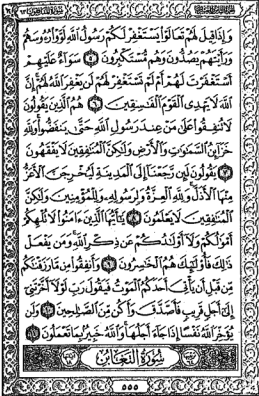 وَإِذَا قِيلَ لَهُمْ تَعَالَوْا۟ يَسْتَغْفِرْ لَكُمْ رَسُولُ ٱللَّهِ لَوَّوْا۟ رُءُوسَهُمْ
وَرَأَيْتَهُمْ يَصُدُّونَ وَهُم مُّسْتَكْبِرُونَ ٥ سَوَآءٌ عَلَيْهِمْ
أَسْتَغْفَرْتَ لَهُمْ أَمْ لَمْ تَسْتَغْفِرْ لَهُمْ لَن يَغْفِرَ ٱللَّهُ لَهُمْ إِنَّ
ٱللَّهَ لَا يَهْدِى ٱلْقَوْمَ ٱلْفَٰسِقِينَ ٦ هُمُ ٱلَّذِينَ يَقُولُونَ
لَا تُنفِقُوا۟ عَلَىٰ مَنْ عِندَ رَسُولِ ٱللَّهِ حَتَّىٰ يَنفَضُّوا۟ وَلِلَّهِ
خَزَآئِنُ ٱلسَّمَٰوَٰتِ وَٱلْأَرْضِ وَلَٰكِنَّ ٱلْمُنَٰفِقِينَ لَا يَفْقَهُونَ
٧ يَقُولُونَ لَئِن رَّجَعْنَآ إِلَى ٱلْمَدِينَةِ لَيُخْرِجَنَّ ٱلْأَعَزُّ
مِنْهَا ٱلْأَذَلَّ وَلِلَّهِ ٱلْعِزَّةُ وَلِرَسُولِهِۦ وَلِلْمُؤْمِنِينَ وَلَٰكِنَّ
ٱلْمُنَٰفِقِينَ لَا يَعْلَمُونَ ٨ يَٰٓأَيُّهَا ٱلَّذِينَ ءَامَنُوا۟ لَا تُلْهِكُمْ
أَمْوَٰلُكُمْ وَلَآ أَوْلَٰدُكُمْ عَن ذِكْرِ ٱللَّهِ وَمَن يَفْعَلْ
ذَٰلِكَ فَأُو۟لَٰٓئِكَ هُمُ ٱلْخَٰسِرُونَ ٩ وَأَنفِقُوا۟ مِن مَّا رَزَقْنَٰكُم
مِّن قَبْلِ أَن يَأْتِىَ أَحَدَكُمُ ٱلْمَوْتُ فَيَقُولَ رَبِّ لَوْلَآ أَخَّرْتَنِىٓ
إِلَىٰٓ أَجَلٍ قَرِيبٍ فَأَصَّدَّقَ وَأَكُن مِّنَ ٱلصَّٰلِحِينَ ١٠ وَلَن
يُؤَخِّرَ ٱللَّهُ نَفْسًا إِذَا جَآءَ أَجَلُهَا وَٱللَّهُ خَبِيرٌۢ بِمَا تَعْمَلُونَ ١١
سُورَةُ ٱلتَّغَابُنِ
٥٥٥